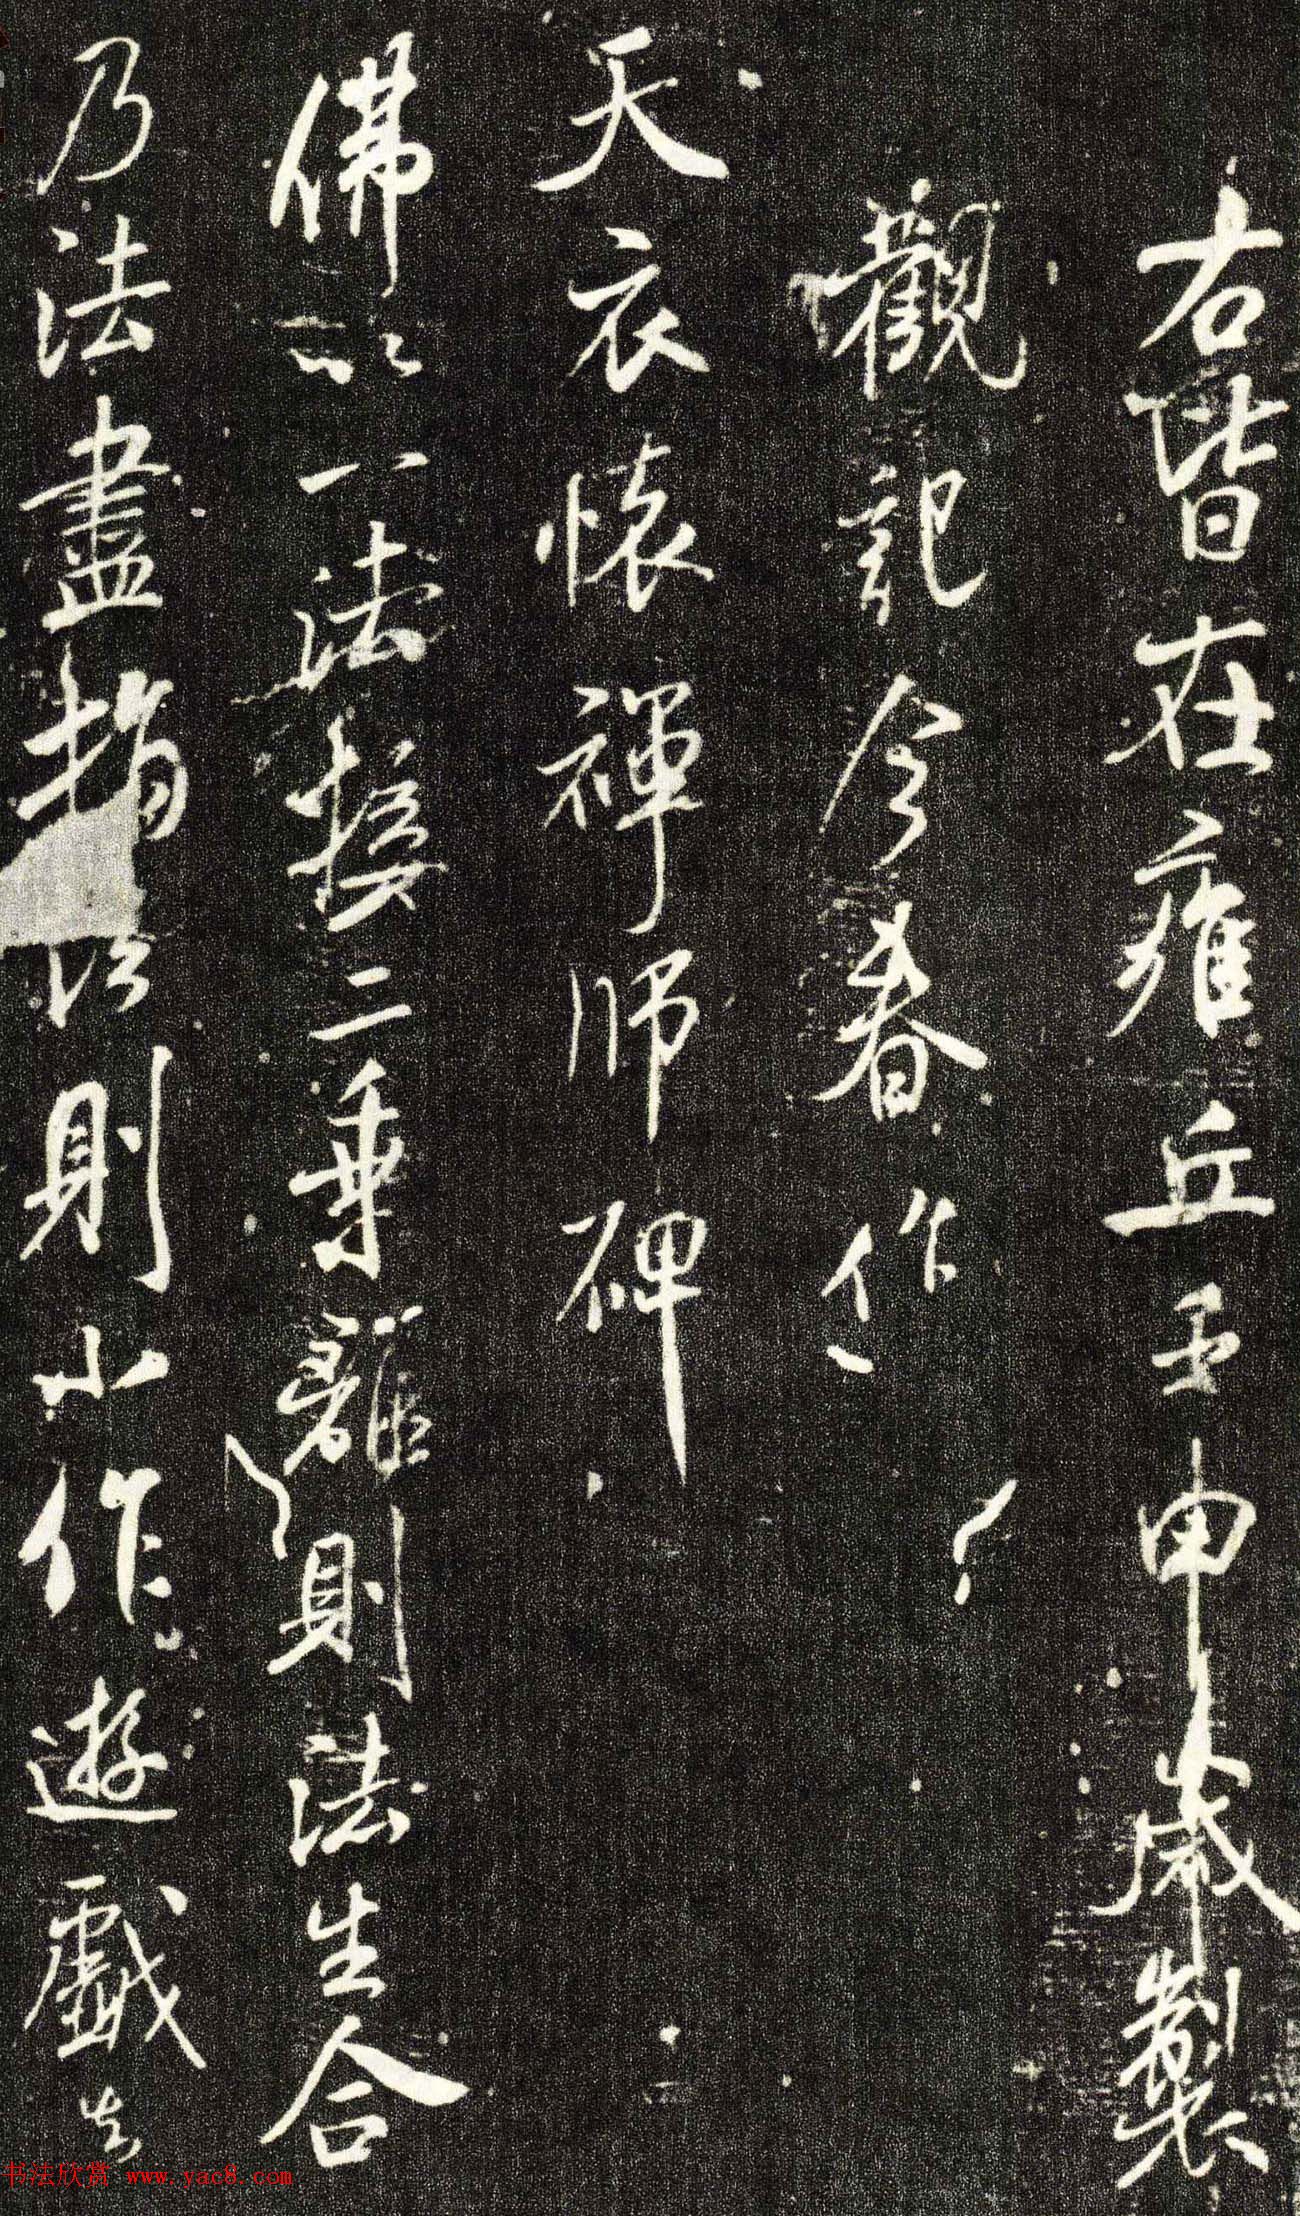 右皆在雍丘壬申歲製
觀記今春作
天衣懷禪師碑
佛以一法接二乘離則法生合
乃法盡指法則小作遊戲
书法欣赏 www.yac8.com